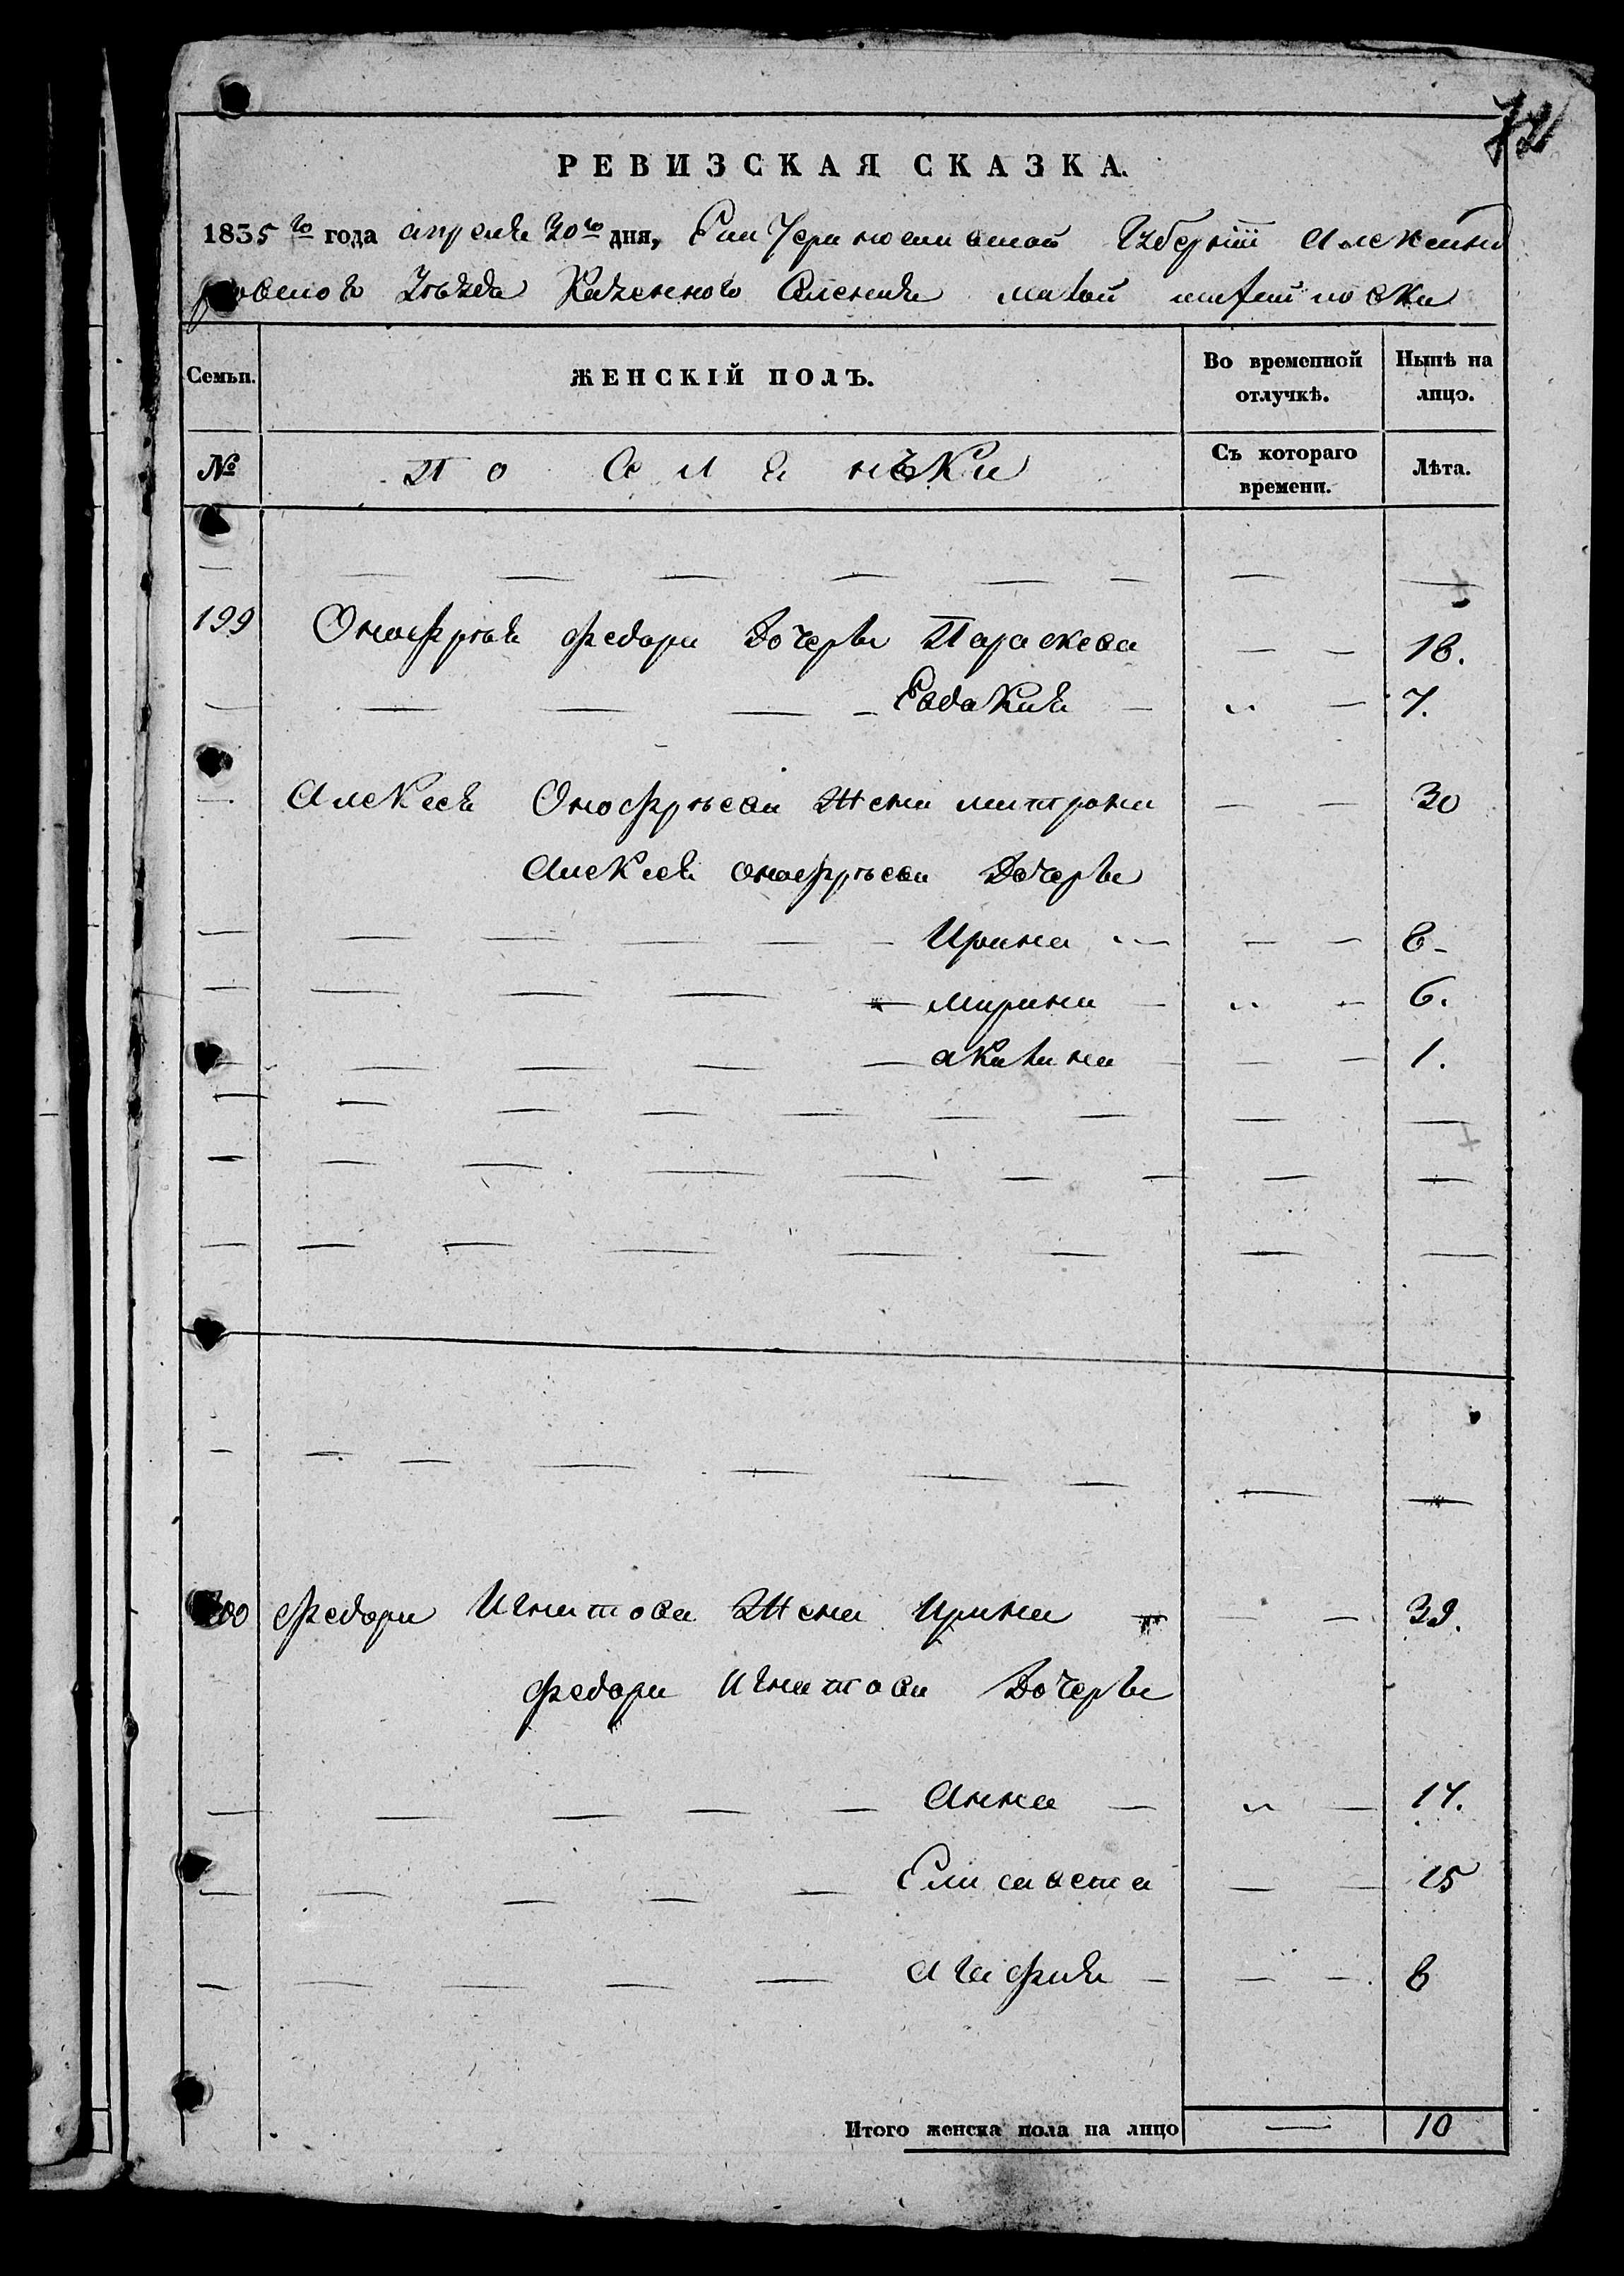 72
РЕВИЗСКАЯ СКАЗКА.
1835 го года апреля 20 го дня, Екатеринославской Губернiи Александ
ровского Уезда Казенного Селения малой
Семьи. ЖЕНСКІЙ ПОЛЪ. Во временной отлучкѣ. Нынѣ на лицо.
№ Поселянъки Съ котораго времени. Лѣта.
199 Онофрѣя Федора дочерьи Параскева — — 18.
Евдакия — 7.
Алексея Онофрѣева жена матрона — — 30
Алексея онофрѣева дочерьи
Ирина — — 8
марина — 6.
акилина — — 1.
200 Федора Игнатова жена Ирина — — 39.
Федора игнатова дочерьи
Анна — 17.
Елисавета — — 15
Агафия — — 8
Итого женска пола на лицо — 10